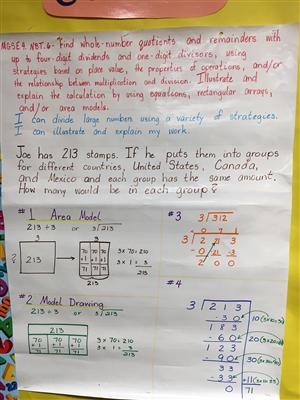 MGSE4.NBT.6- Find whole-number quotients and remainders with
up to four-digit dividends and one-digit divisors, using
strategies based on place value, the properties of operations, and/or
the relationship between multiplication and division. Illustrate and
explain the calculation by using equations, rectangular arrays,
and/or area models.
I can divide large numbers using a variety of strategies.
I can illustrate and explain my work.
Joe has 213 stamps. If he puts them into groups
for different countries, United States, Canada,
and Mexico and each group has the same amount.
How many would be in each group?
#1 Area Model
213÷3 or 3/213
3
?
213
3
70 70 70
+1 +1 +1
71 71 71
213
3x70=210
3x1= 3
213
#2 Model Drawing
213÷3 or 3/213
213
70 70 70
+1 +1 +1
71 71 71
3x70=210
3x1= 3
213
#3
3/312
0 7 1
3 2 21 3
-0 21 -3
2 0 0
#4
3 213
-30 10(3x10=30)
183
-60 20
123
-90 30
33
-33 +11
0 71